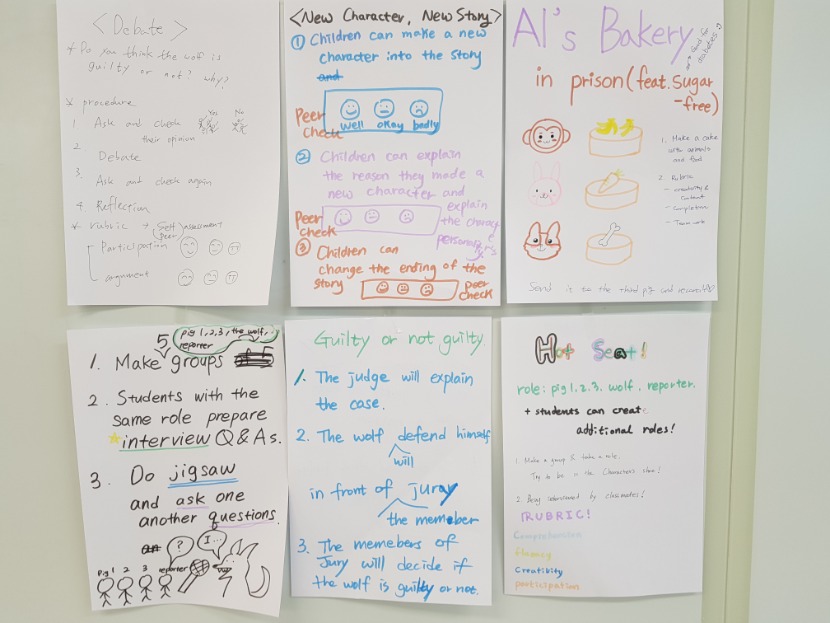 < Debate >
* Do you think the wolf is
guilty or not? why?
* procedure
1. Ask and check
Yes No
their opinion
2.
Debate
3.
Ask and check again
4. Reflection
* rubric → Self assessment
Peer
Participation
argument
<New Character, New Story>
① Children can make a new
character into the story
and
Peer
check
well okay badly
② Children can explain
the reason they made a
new character and
explain
the character's
personality
Peer
check
③ Children can
change the ending of the
story
peer
check
Al's Bakery
in prison (feat. Sugar
-free)
food for
diabetes
1. Make a cake
with animals
and food
2. Rubric
- creativity &
content
- Completion
- Team work
Send it to the third pig and
pig 1,2,3, the wolf,
reporter
5
1. Make groups
2. Students with the
same role prepare
interview Q&As.
3. Do jigsaw
and ask one
another questions.
?
I...
pig 1 2 3 reporter
Guilty or not guilty
1. The judge will explain
the case.
2. The wolf defend himself
will
in front of jury
the memeber
3. The memebers of
Jury will decide if
the wolf is guilty or not.
Hot Seat!
role: pig 1. 2. 3. wolf. reporter.
+ students can create
additional roles!
1. Make a group & take a role.
Try to be in the Character's shoe!
2. Being interviewed by classmates!
RUBRIC!
Comprehension
fluency
Creativity
participation